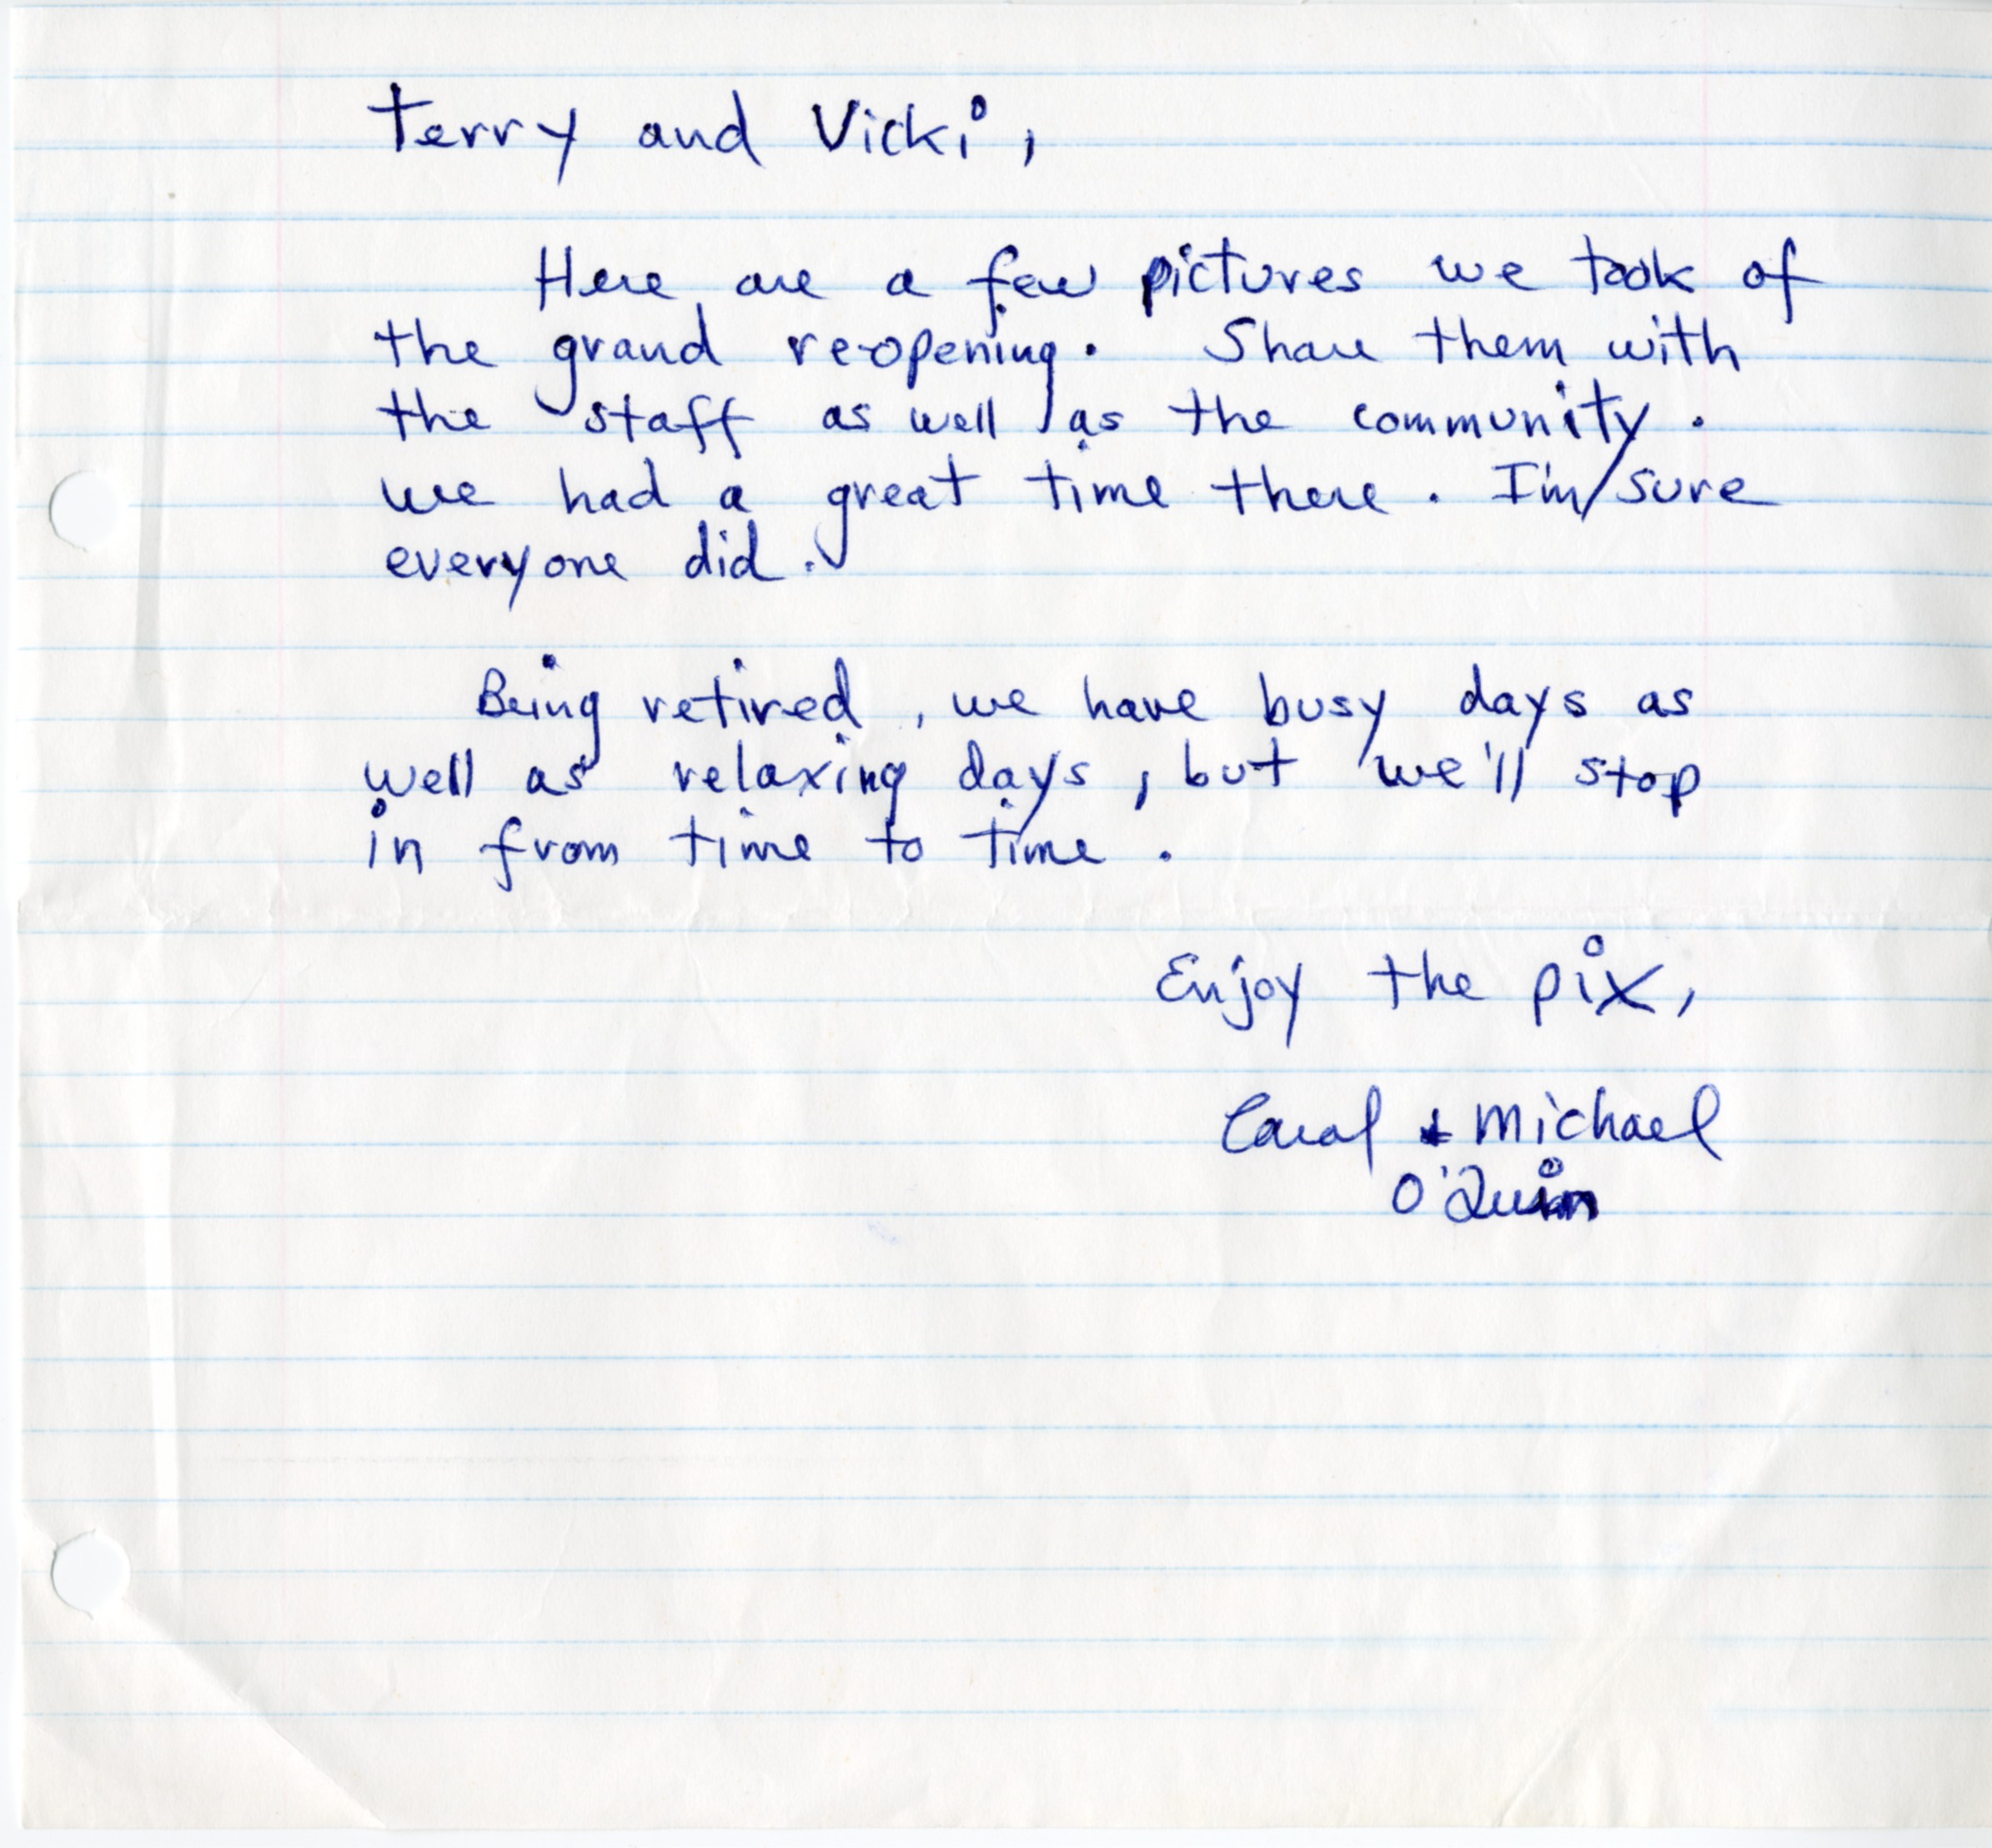 Terry and Vicki,
Here are a few pictures we took of
the grand re-opening. Share them with
the staff as well as the community.
we had a great time there. I'm sure
everyone did.
Being retired, we have busy days as
well as relaxing days, but we'll stop
in from time to time.
Enjoy the pix,
Carol & Michael
O'Quin